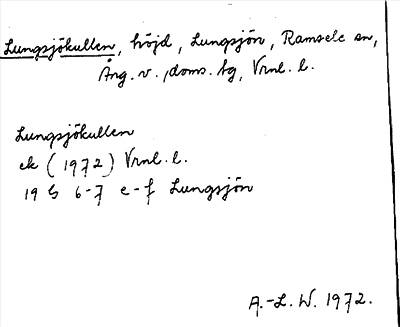 Lungsjökullen, höjd, Lungsjön, Ramsele sn,
Ång. v. doms. tg, Vrnl. l.
Lungsjökullen
ek (1972) Vrnl. l.
19 G 6-7 e-f Lungsjön
A.-L. W. 1972.